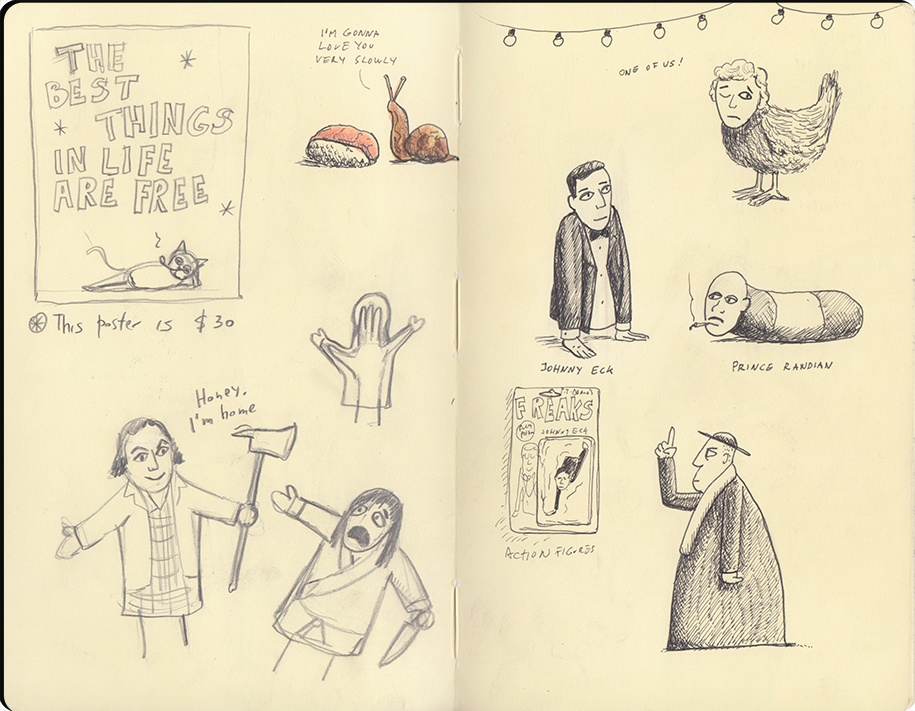 THE
BEST
THINGS
IN LIFE
ARE FREE
This poster is $30
I'M GONNA
LOVE YOU
VERY SLOWLY
Honey,
I'm home
ONE OF US!
JOHNNY ECK
PRINCE RANDIAN
FREAKS
JOHNNY ECK
ACTION FIGURES